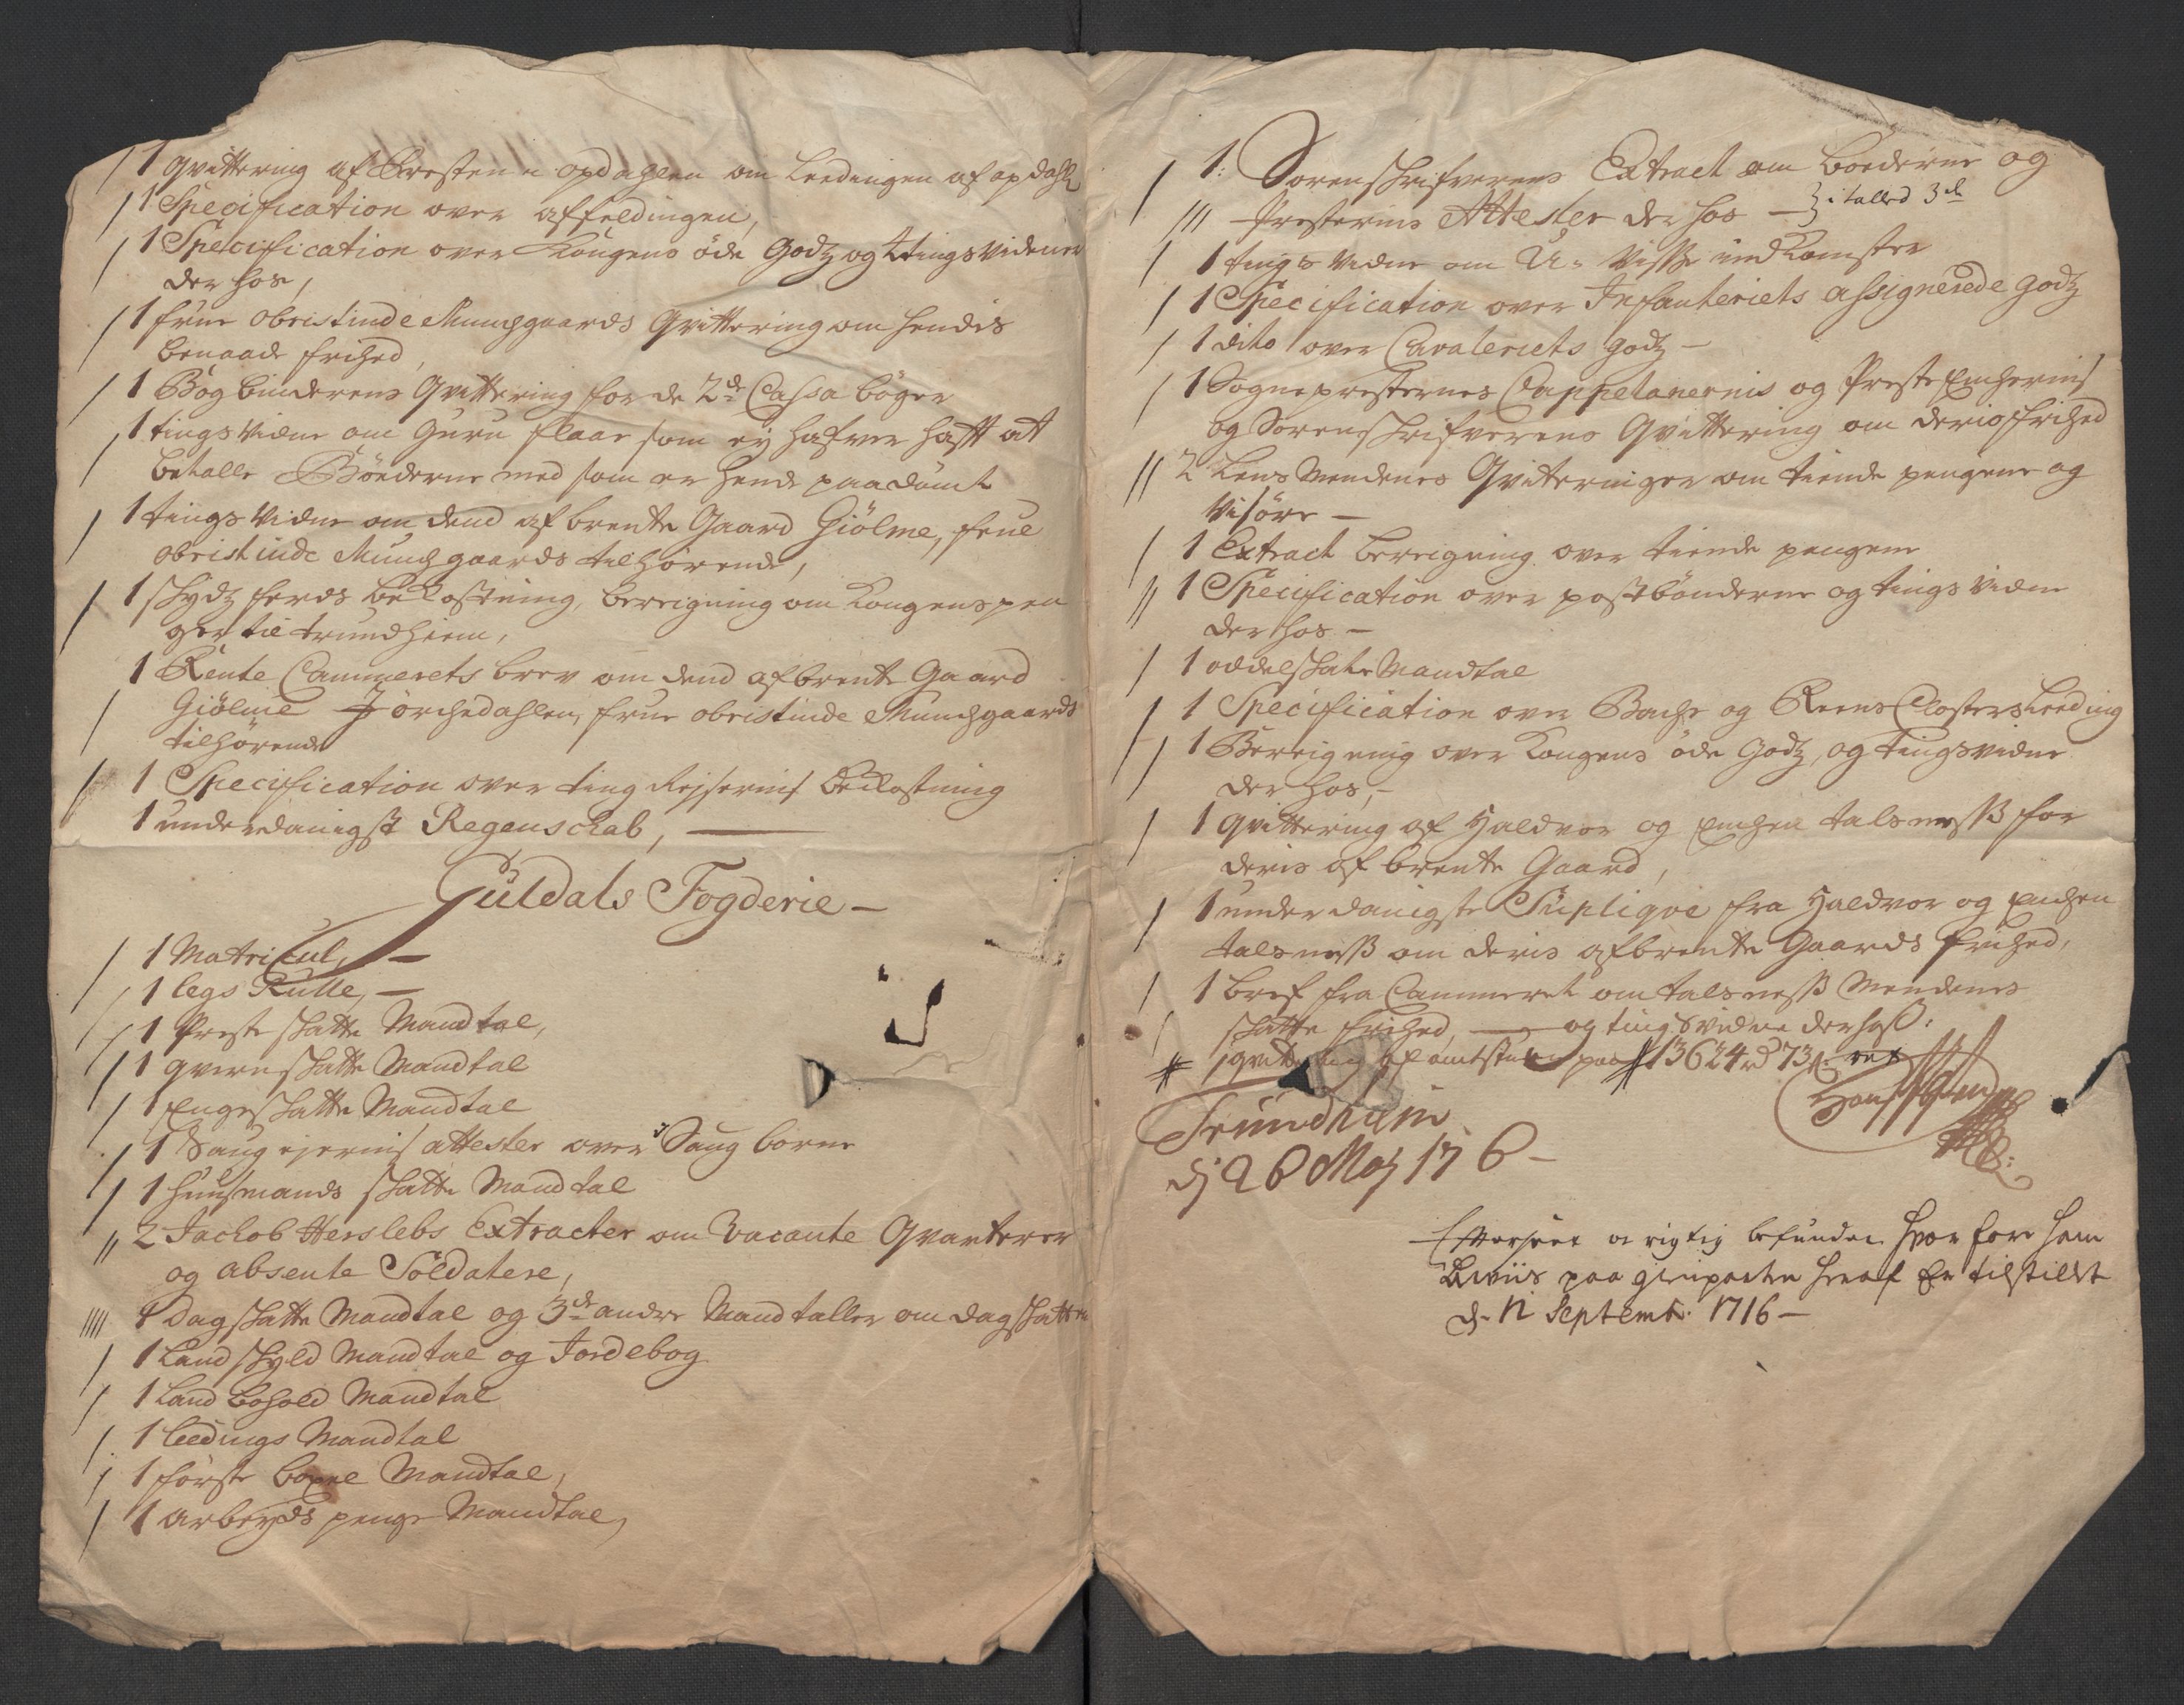 1 Qvittering af Presten i Opdahlen om Leedingen af Opdahl
1 Specification over affeldingen,
1 Specification over Kongens öde Godtz og 2 tings videner
der hos,
1 frue Obristinde Munchgaards Qvittering om hendis
benaade frihed,
1 Bogbinderens Qvittering for de 2de Cassa böger
1 tings vidne om Guru Flaae som ey hafver hafft at
betalle Bönderne med som er hende paadömt
1 tings vidne om dend afbrente Gaard Giölme, frue
Obristinde Munchgaards tilhörende,
1 skydtz ferds bekostning, beregning om Kongens pen
ger til Trundhiem,
1 Rente Cammerets brev om dend afbrente Gaard
Giölme I Örchedahlen, frue Obristinde Munchgaards
tilhörende
1 Specification over ting Rejsernis bekostning
1 underdanigst Regenschab,
Guldals Fogderie
1 Matricul,
1 legs Rulle,
1 Preste skatte Mandtal,
1 qvern skatte Mandtal
1 Enge skatte Mandtal
1 Saug ejernis attester over Saug borne
1 huusmands skatte Mandtal
2 Jachob Herslebs Extracter om Vacante Qvarterer
og absente Soldatere,
1 Dag skatte Mandtal og 3de andre Mandtaller om dagskatten
1 Land skyld Mandtal og Jordebog
1 Land bohold Mandtal
1 Leedings Mandtal
1 förste böxel Mandtal,
1 arbeyds penge Mandtal,
1: Sorenskrifverens Extract om böederne og
Presternis Attester der hos i talled 3de
1 tings vidne om U: visse indkomster
1 Specification over Infanteriets assignerede godtz
1 dito over Cavaleriets godtz
1 Sognepresternes Cappelanernis og Preste Enchernis
og Sorenskrifverens Qvittering om deris frihed
2 Lens Mendenes Qvitteringer om tiende pengene og
visöre
1 Extract beregning over tiende pengene
1 Specification over postbönderne og tings vidne
der hos
1 oddelskatte Mandtal
1 Specification over Bache og Reens Closters Leeding
1 Beregning over Kongens öde Godtz, og tingsvidne
der hos,
1 qvittering af Haldvor og Enchen talsness for
deris af brente Gaard,
1 underdanigste Suplique fra Haldvor og Enchen
talsness om deris afbrente Gaards frihed,
1 bref fra Cammeret om talsness Mendenes
skatte frihed, og tings vidne derhoß:
1 qvittering af amtstuen paa 13624 rd 73
Trundhiem
dj 26 Maj 1716
Efterseet oc rigtig befunden hvor fore ham
beviis paa genparten heraf er tilstillet
d. 12 Septemb: 1716